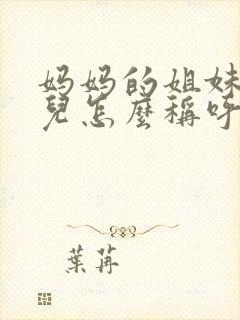 妈妈的姐妹
兒怎麼稱呼
葉苒